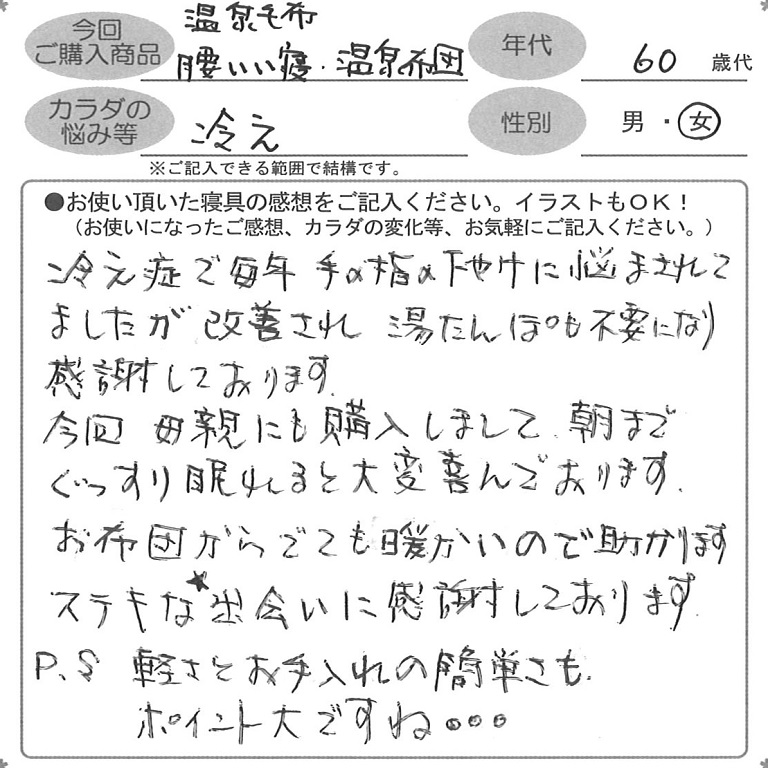 今回
ご購入商品
温泉毛布
腰いい寝・温泉布団
年代
60 歳代
カラダの
悩み等
冷え
性別
男・女
※ご記入できる範囲で結構です。
●お使い頂いた寝具の感想をご記入ください。イラストもOK！
（お使いになったご感想、カラダの変化等、お気軽にご記入ください。）
冷え症で毎年 手の指の下やけに悩まされて
ましたが 改善され 湯たんぽも不要になり
感謝しております
今回 母親にも購入しまして、朝まで
ぐっすり眠れると大変喜んでおります.
お布団がらでても暖かいので助かります
ステキな★出会いに感謝しております
P.S 軽さとお手入れの簡単さも.
ポイント大ですね...